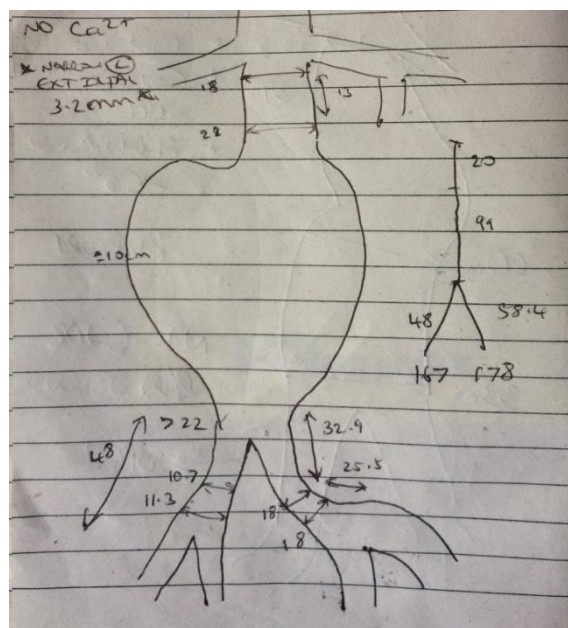 NO Ca²⁺
* NARROW Ⓛ
EXT ILIAC
3.2mm *
18
13
22
20
99
≈10cm
48
58.4
167
178
>22
32.9
48
25.5
10.7
11.3
18
18